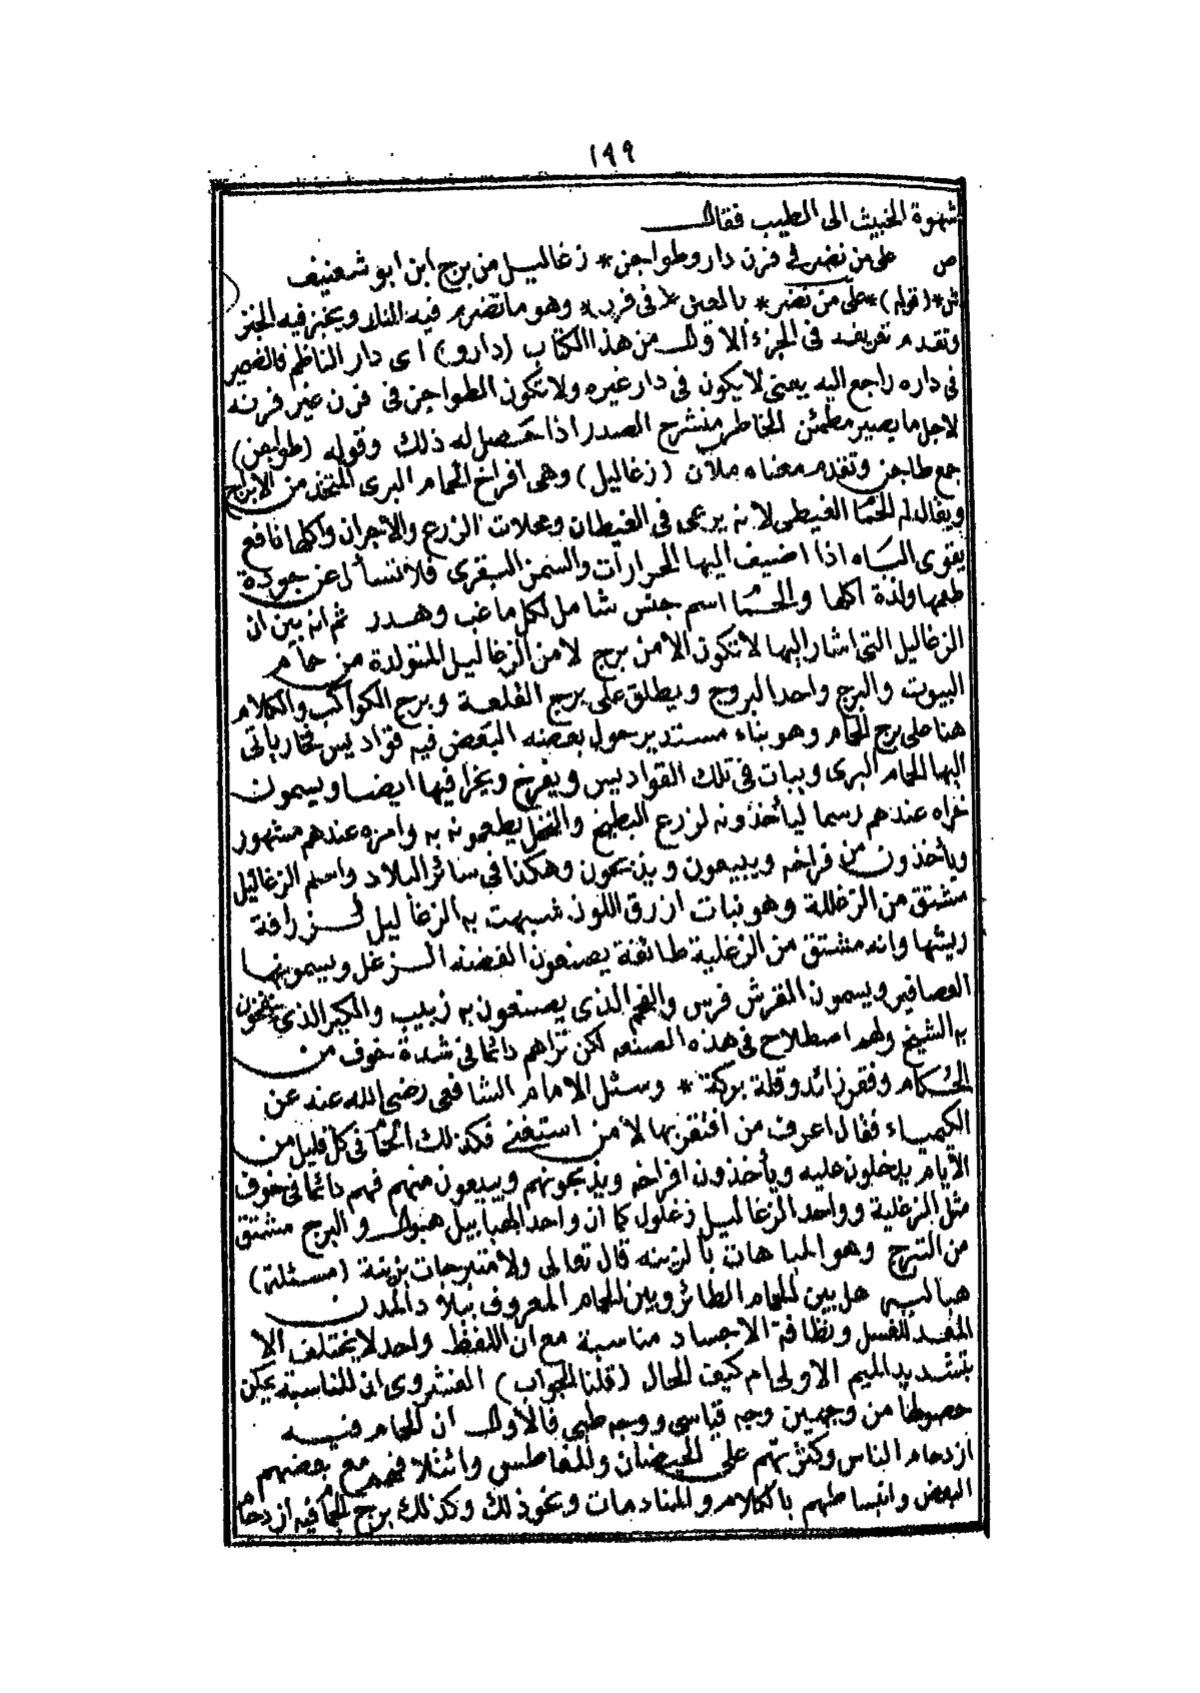 ١٩٩
شهوة الخبيث الى الطيب فقال
ص على من نضر في فرن دارو طواجن * زغاليل من برج ابن ابو شعنيف
ش * (قوله) * على من نضر * بالمعنى * في فرن * وهو ما تضرم فيه النار ويخبز فيه الخبز
وتقدم تعريفه في الجزء الاول من هذا الكتاب (دارو) اى دار الناظم فالضمير
في داره راجع اليه يعنى لا يكون في دار غيره ولا تكون الطواجن في فرن غير فرنه
لاجل ما يصير مطمئن الخاطر منشرح الصدر اذا حصل له ذلك وقوله (طواجن)
جمع طاجن وتقدم معناه ملآن (زغاليل) وهى افراخ الحمام البرى المتخذ من الابراج
ويقال له الحمام الغيطى لانه يرعى في الغيطان ومحلات الزرع والاجران واكلها نافع
يقوى الباه اذا اضيف اليها الحرارات والسمن البقرى فلا تسأل عن جودة
طعمها ولذة اكلها والحمام اسم جنس شامل لكل ما عب وهدر ثم انه بين ان
الزغاليل التى اشار اليها لا تكون الا من برج لا من الزغاليل المتولدة من حمام
البيوت والبرج واحد البروج ويطلق على برج القلعة وبرج الكواكب والكلام
هنا على برج الحمام وهو بناء مستدير حول بعضه البعض فيه قواديس فخار ياتى
اليها الحمام البرى ويبات في تلك القواديس ويفرخ ويخرا فيها ايضا ويسمون
خراه عندهم رسما ليأخذونه لزرع البطيخ والنخل يطعمونه به وامره عندهم مشهور
ويأخذون من فراخه ويبيعون ويذبحون وهكذا في سائر البلاد واسم الزغاليل
مشتق من الزغللة وهو نبات ازرق اللون شبهت به الزغاليل لزرافة
ريشها وانه مشتق من الزغلية طائفة يصنعون الفضه الزغل ويسمونها
العصافير ويسمون المقرش فرس والفحم الذى يصنعون به زبيب والكير الذى ينفخون
به الشيخ ولهم اصطلاح في هذه الصنعه لكن تراهم دائما في شدة خوف من
الحكام وفقر زائد وقلة بركة * وسئل الامام الشافعى رضى الله عنه عن
الكيمياء فقال اعرف من افتقر بها لا من استغنى فكذلك الحمام في كل قليل من
الايام يدخلون عليه ويأخذون افراخه ويذبحونهم ويبيعون منهم فهم دائما في خوف
مثل الزغلية وواحد الزغاليل زغلول كما ان واحد الهبابيل هبول والبرج مشتق
من التبرج وهو المباهات بالزينه قال تعالى ولا متبرجات بزينة (مسئلة)
هباليه هل بين الحمام الطائر وبين الحمام المعروف ببلاد المدن
المعد للغسل ونظافة الاجساد مناسبة مع ان اللفظ واحد لا يختلف الا
بتشديد الميم الاولى ام كيف الحال (قلنا الجواب) الفشروى ان المناسبة يمكن
حصولها من وجهين وجه قياسى ووجه طبى فالاول ان الحمام فيه
ازدحام الناس وكثرتهم على الحيضان والمغاطس وائتلافهم مع بعضهم
البعض وانبساطهم بالكلام والمنادمات ونحو ذلك وكذلك برج الحمام فيه ازدحام